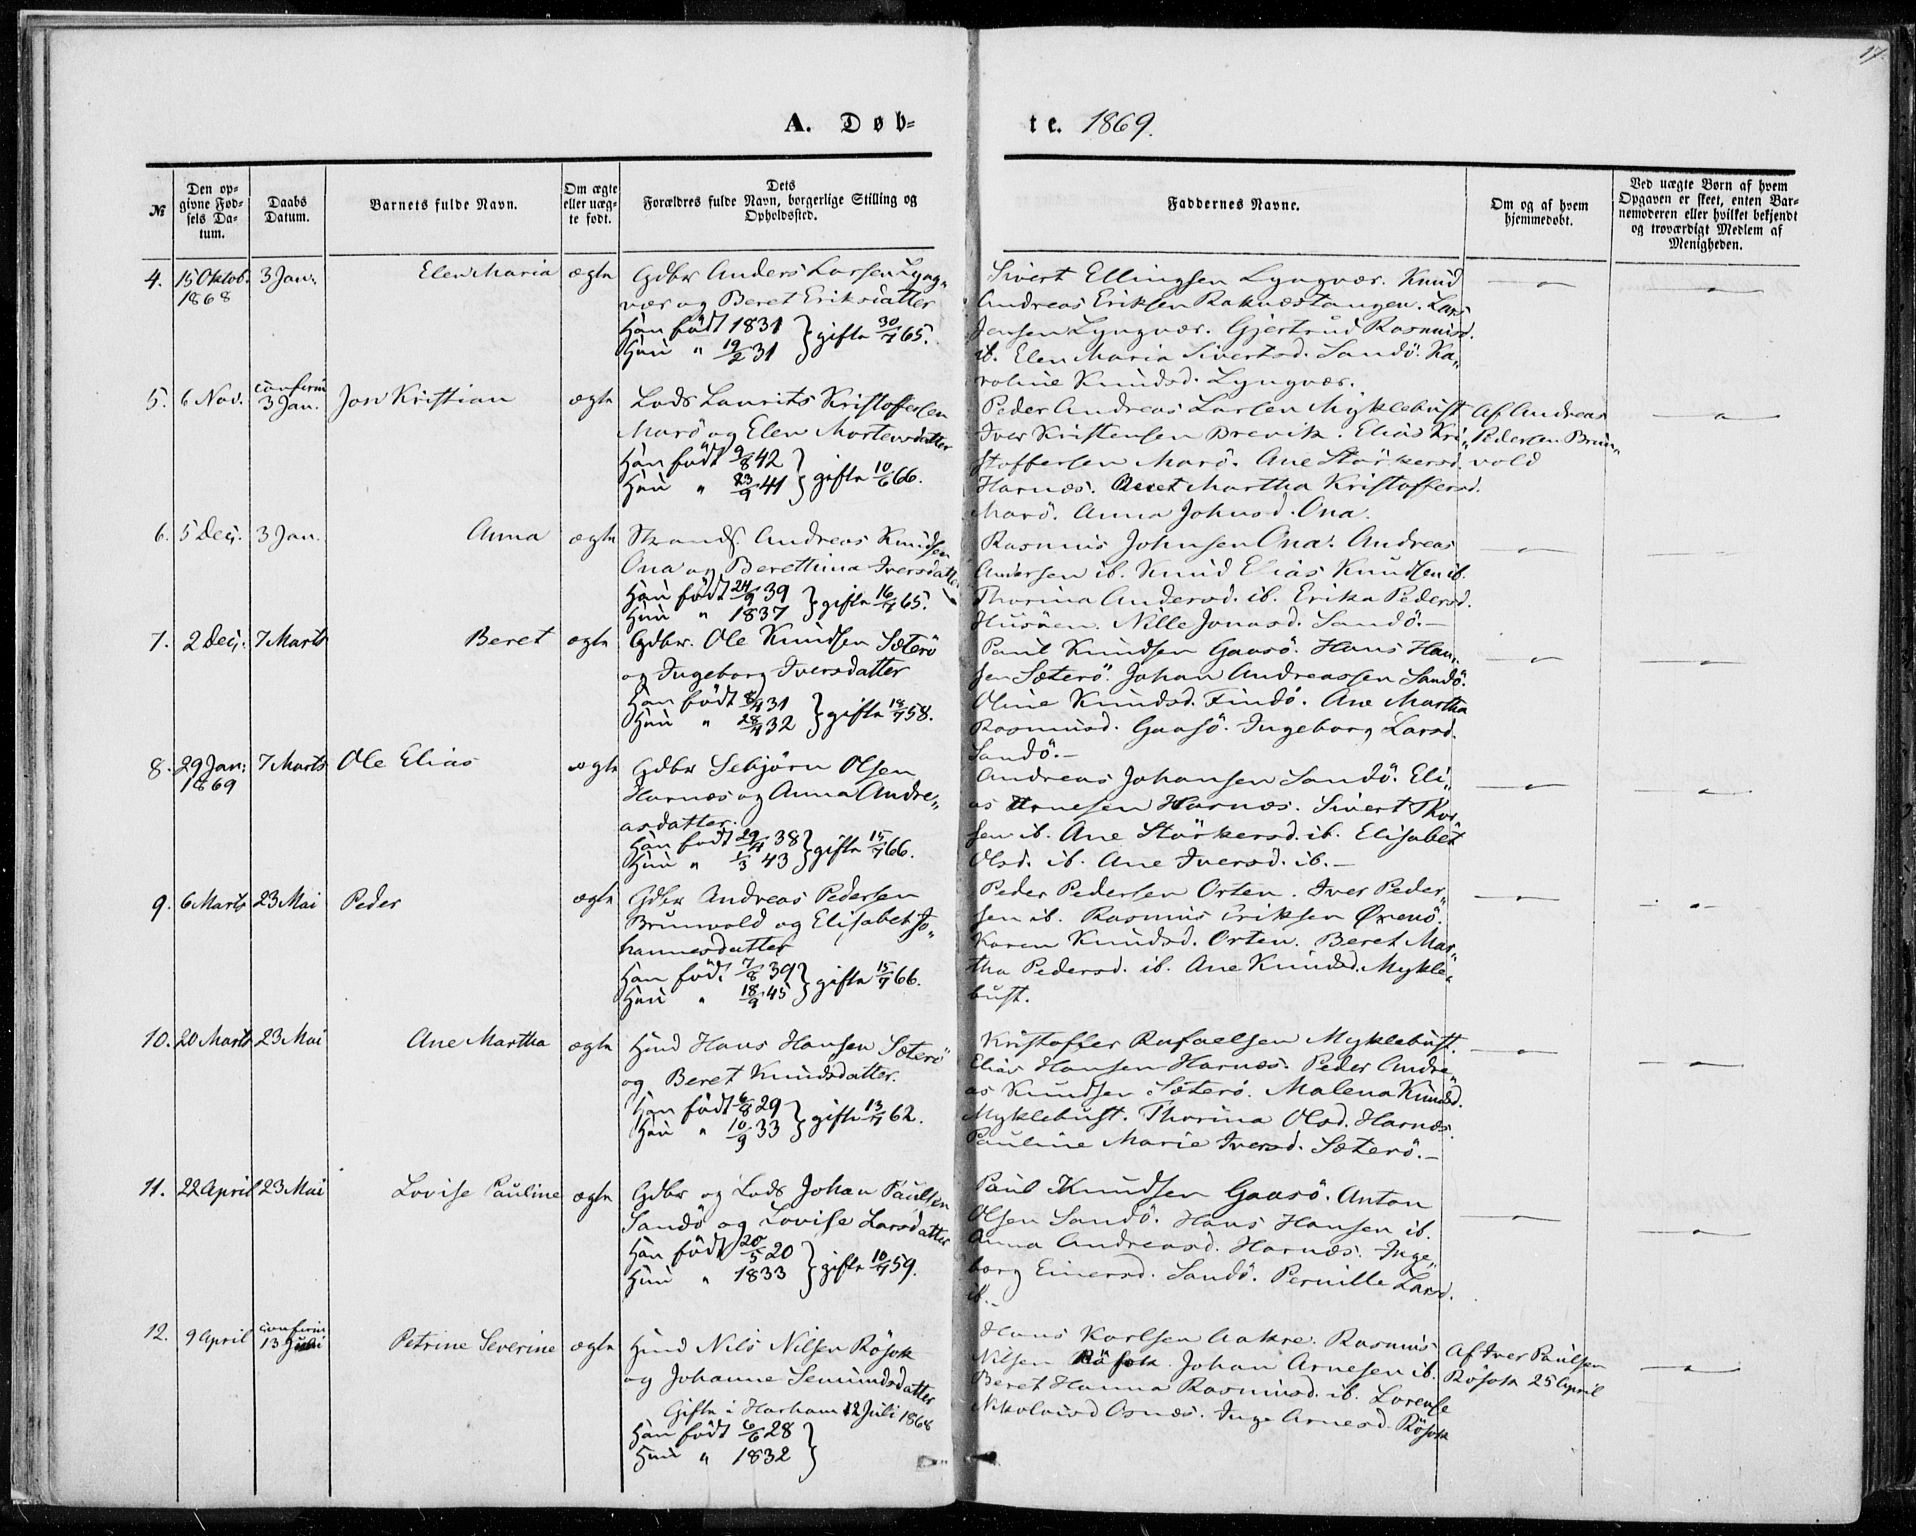 17.
A. Døb-
te. 1869.
№
Den op-
givne Fød-
sels Da-
tum.
Daabs
Datum.
Barnets fulde Navn.
Om ægte
eller uæg-
te født.
Dets
Forældres fulde Navn, borgerlige Stilling og
Opholdssted.
Faddernes Navne.
Om og af hvem
hjemmedøbt.
Ved uægte Børn af hvem
Opgaven er skeet, enten Bar-
nemoderen eller hvilket bekjendt
og troværdigt Medlem af
Menigheden.
4. 15 Oktob.
1868
3 Jan.
Elen Maria
ægte
Gdbr Anders Larsen Lyng„
vær og Beret Eriksdatter
Han födt 1831
Hun „ 19/2 31 } gifte 30/7 65.
Sivert Ellingsen Lyngvær. Knud
Andreas Eriksen Raknæstangen. Lars
Jensen Lyngvær. Gjertrud Rasmusd.
ib. Elen Maria Sivertsd. Sandö. Ka„
roline Knudsd. Lyngvær.
5. 6 Nov.
confirm
3 Jan.
Jon Kristian
ægte
Lods Laurits Kristoffersen
Marö og Elen Mortensdatter
Han födt 9/8 42
Hun „ 23/9 41 } gifte 10/6 66.
Peder Andreas Larsen Myklebust
Iver Kristensen Brevik. Elias Kri„
stoffersen Marö. Ane Störkersd.
Harnæs. Anet Martha Kristoffersd.
Marö. Anna Johnsd. Ona.
Af Andreas
Pedersen Brun„
vold
6. 5 Dec.
3 Jan.
Anna
ægte
Strands. Andreas Knudsen
Ona og Berethina Iversdatter
Han födt 24/9 39
Hun „ 1837 } gifte 16/7 65.
Rasmus Johnsen Ona. Andreas
Andersen ib. Knud Elias Knudsen ib.
Thorina Andersd. ib. Erika Pedersd.
Husöen. Nille Jonasd. Sandö.—
7. 2 Dec.
7 Marts
Beret
ægte
Gdbr. Ole Knudsen Sæterö
og Ingeborg Iversdatter
Han födt 8/4 31
Hun „ 28/4 32 } gifte 18/7 58.
Paul Knudsen Gaasö. Hans Han„
sen Sæterö. Johan Andreassen Sandö.
Oline Knudsd. Findö. Ane Martha
Rasmusd. Gaasö. Ingeborg Larsd.
Sandö.—
8. 29 Jan.
1869
7 Marts
Ole Elias
ægte
Gdbr Sebjörn Olsen
Harnæs og Anna Andre„
asdatter.
Han födt 29/4 38
Hun „ 1/3 43 } gifte 15/7 66.
Andreas Johansen Sandö. Eli„
as Arnesen Harnæs. Sivert Thor
sen ib. Ane Störkersd. ib. Elisabet
Olsd. ib. Ane Iversd. ib.—
9. 6 Marts
23 Mai
Peder
ægte
Gdbr Andreas Pedersen
Brunvold og Elisabet Jo„
hannesdatter
Han födt 7/8 39
Hun „ 18/9 45 } gifte 15/7 66.
Peder Pedersen Orten. Iver Peder„
sen ib. Rasmus Eriksen Örenö.
Karen Knudsd. Orten. Beret Mar„
tha Pedersd. ib. Ane Knudsd. Mykle„
bust.
10. 20 Marts
23 Mai
Ane Martha
ægte
Husd Hans Hansen Sæterö
og Beret Knudsdatter.
Han födt 6/8 29
Hun „ 10/9 33 } gifte 13/7 62.
Kristoffer Rafaelsen Myklebust.
Elias Hansen Harnæs. Peder Andre„
as Knudsen Sæterö. Malena Knudsd.
Myklebust. Thorina Olsd. Harnæs.
Pauline Marie Iversd. Sæterö.—
11. 22 April
23 Mai
Lovise Pauline
ægte
Gdbr og Lods Johan Paulsen
Sandö og Lovise Larsdatter
Han födt 20/5 20
Hun „ 1833 } gifte 10/7 59.
Paul Knudsen Gaasö. Anton
Olsen Sandö. Hans Hansen ib.
Anna Andreasd. Harnæs. Inge„
borg Einersd. Sandö. Pernille Larsd.
ib.—
12. 9 April
confirm
13 Juni
Petrine Severine
ægte
Husd Nils Nilsen Rösok
og Johanne Semundsdatter
Gifte i Harham 12 Juli 1868
Han födt 6/6 28
Hun „ 1832 }
Hans Karlsen Aakre. Rasmus
Nilsen Rösok. Johan Arnesen ib.
Beret Hanna Rasmusd. ib. Lorense
Nikolaisd Osnæs. Inge Arnesd. Rösok
Af Iver Paulsen
Rösok 25 April